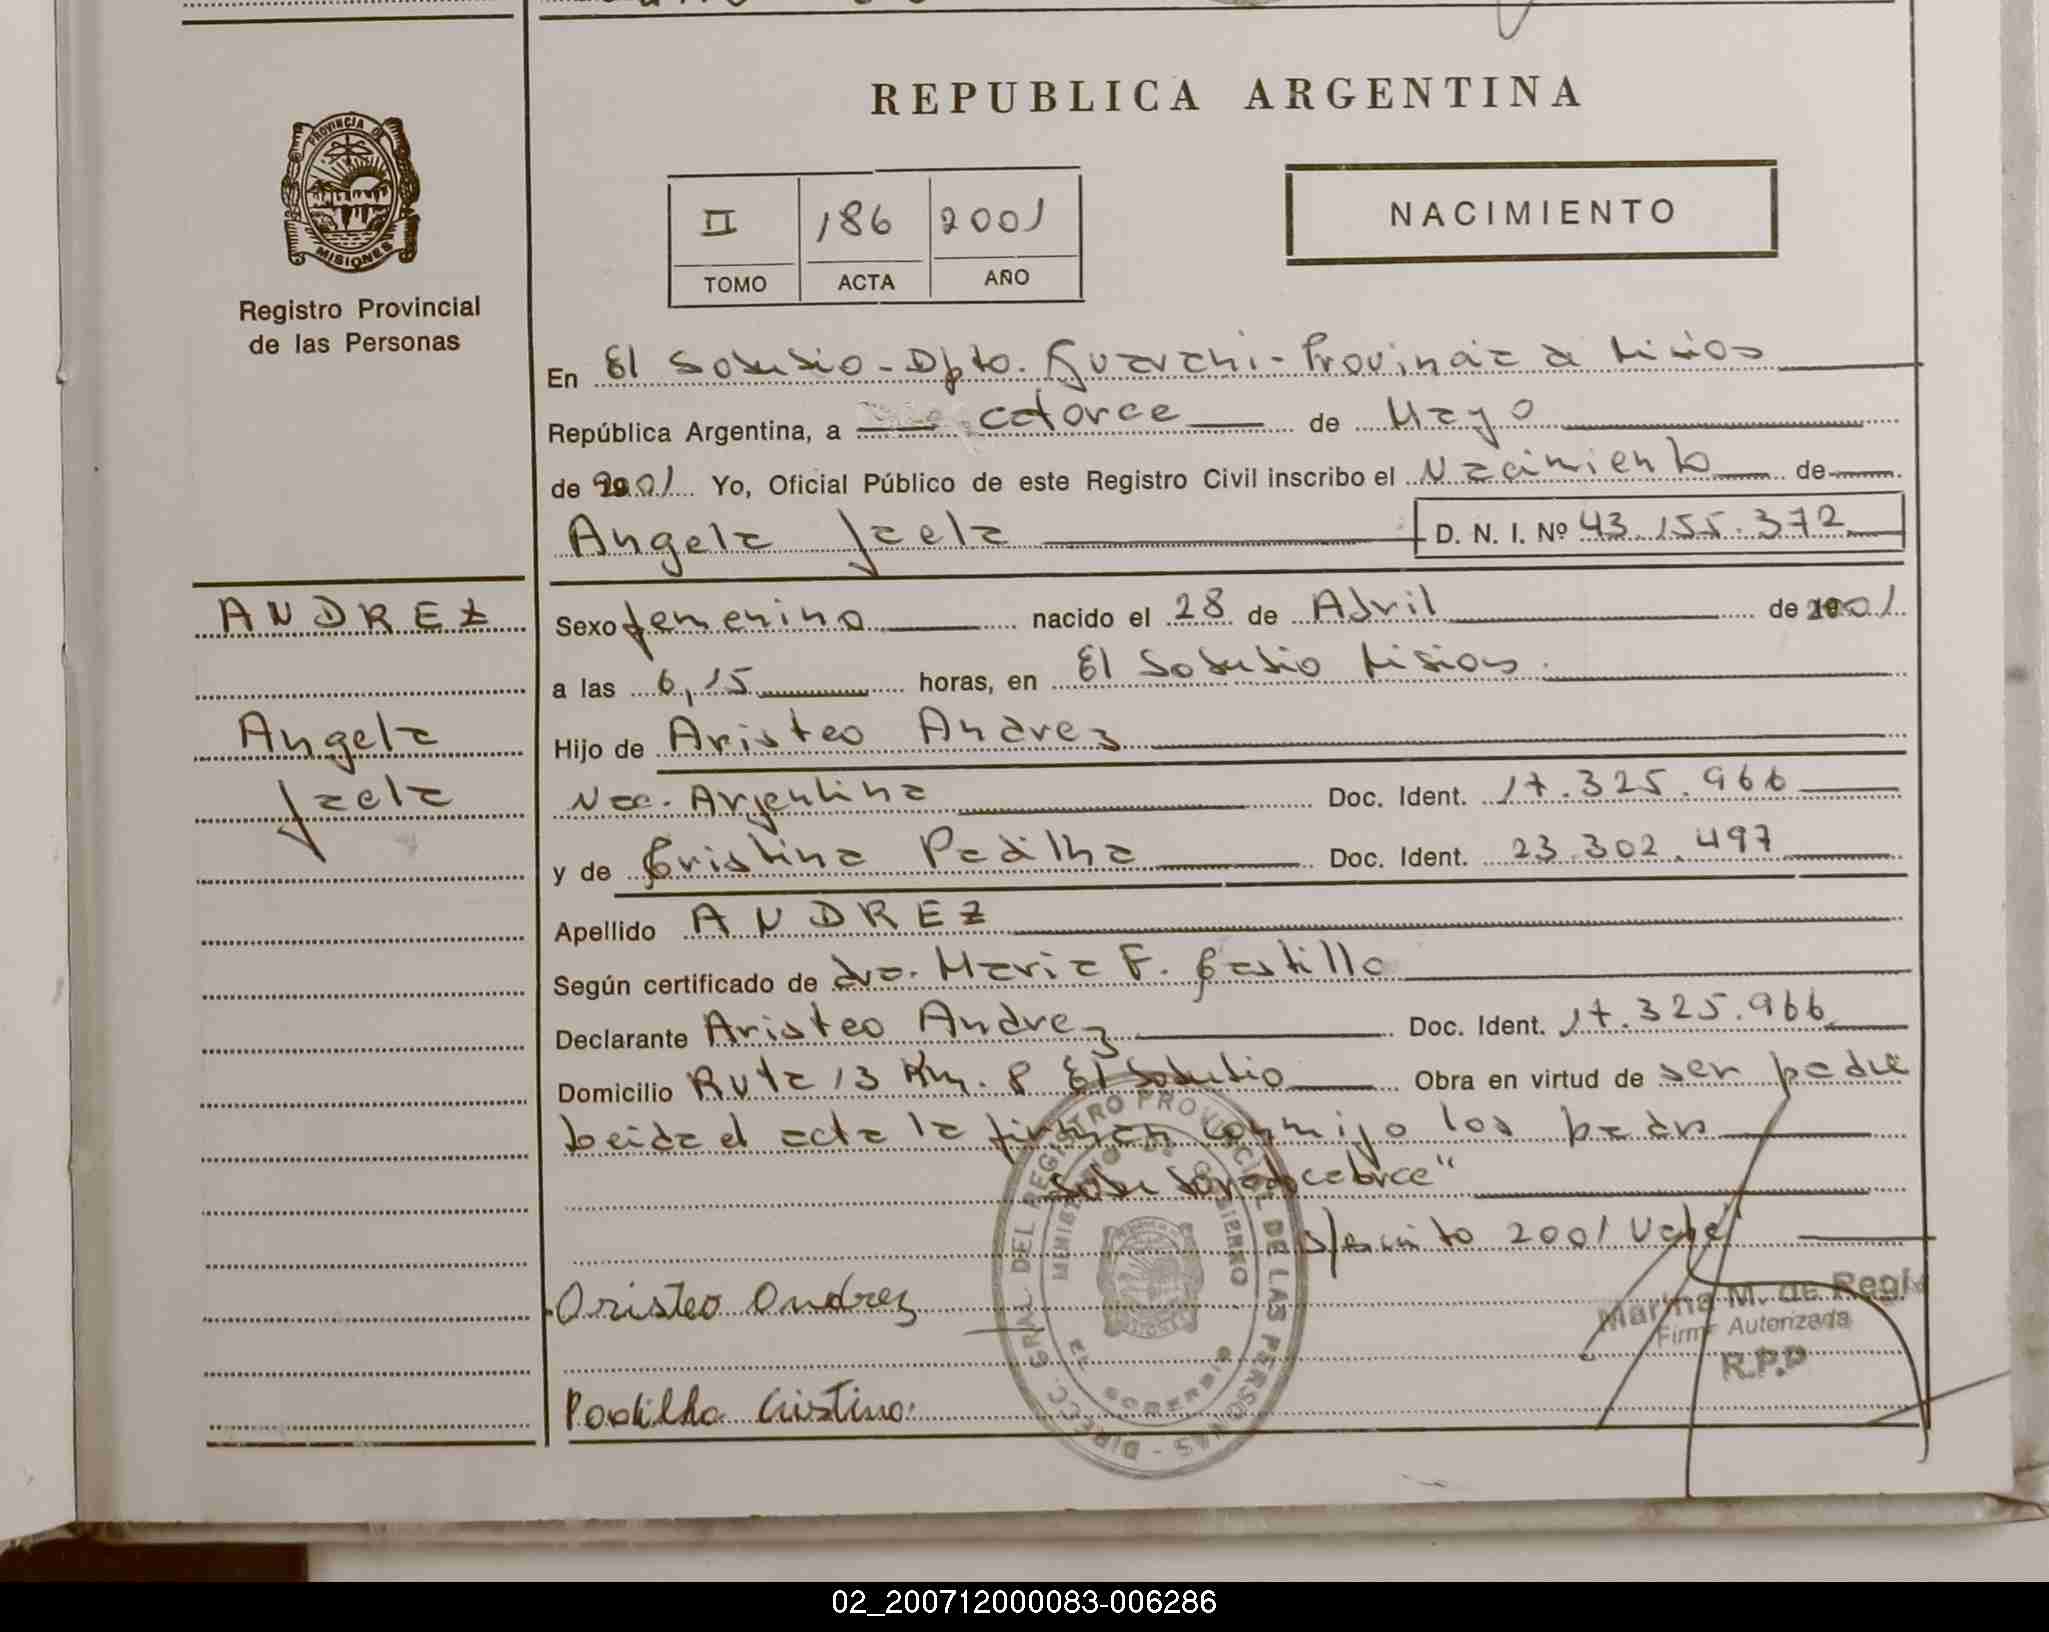 REPUBLICA ARGENTINA
PROVINCIA DE
MISIONES
Registro Provincial
de las Personas
II 186 2001
TOMO ACTA AÑO
NACIMIENTO
En El Soberbio - Dpto. Guarani - Provincia de Misiones
República Argentina, a catorce de Mayo
de 2001 Yo, Oficial Público de este Registro Civil inscribo el Nacimiento de
Angela Jaela D. N. I. Nº 43.155.372
ANDREZ
Angela
Jaela
Sexo femenino nacido el 28 de Abril de 2001
a las 6,15 horas, en El Soberbio Misiones
Hijo de Aristeo Andrez
Nac. Argentina Doc. Ident. 17.325.966
y de Cristina Padilha Doc. Ident. 23.302.497
Apellido ANDREZ
Según certificado de dra. Maria F. Castillo
Declarante Aristeo Andrez Doc. Ident. 17.325.966
Domicilio Ruta 13 Km. 8 El Soberbio Obra en virtud de ser padre
Leida el acta la firman conmigo los padres
Sobre catorce"
s/escrito 2001 Vale"
Aristeo Andrez
Padilha Cristina.
DIRECC. GRAL. DEL REGISTRO PROVINCIAL DE LAS PERSONAS
MINISTERIO DE GOBIERNO
EL SOBERBIO
Marina M. de Regi
Firma Autorizada
R.P.P
02_200712000083-006286